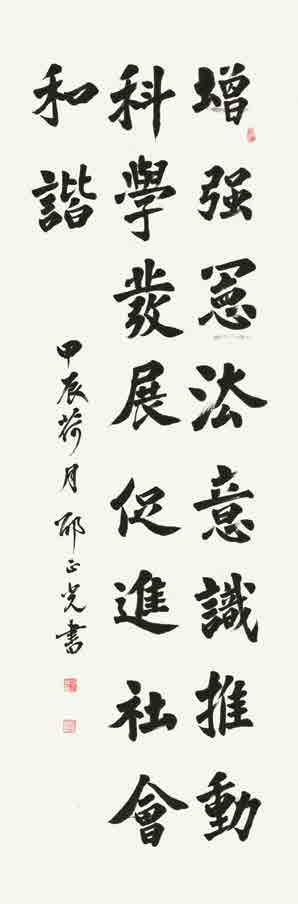 增强憲法意識推動
科學發展促進社會
和諧
甲辰荷月邴正光書